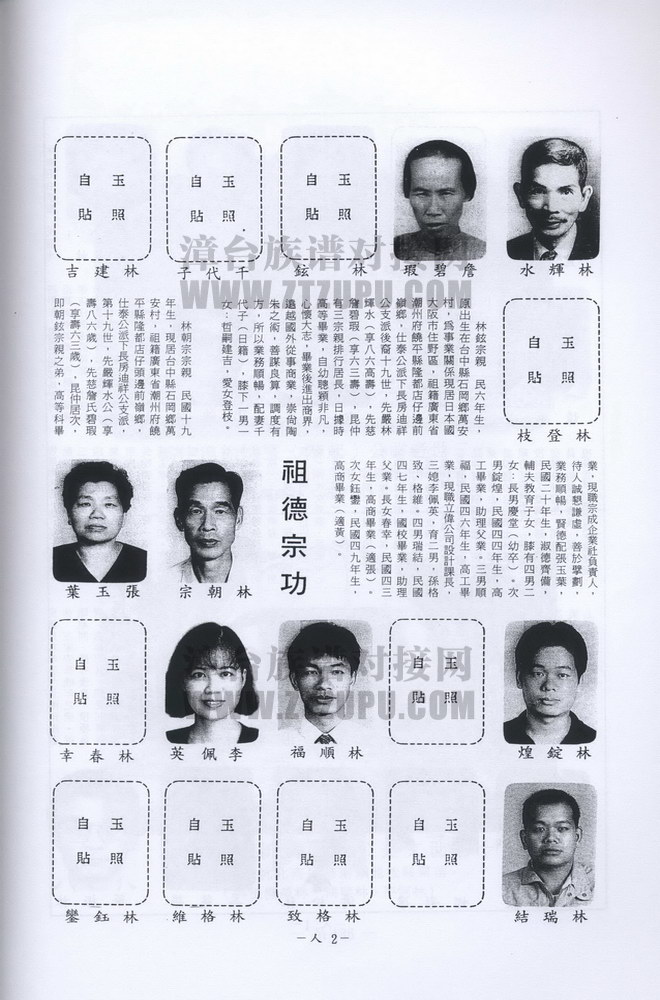 林輝水
詹碧瑕
林鉉
玉照自貼
千代子
玉照自貼
林建吉
玉照自貼
林登枝
玉照自貼
林鉉宗親　民六年生，
原出生在台中縣石岡鄉萬安
村，為事業關係現居日本國
大阪市住野區，祖籍廣東省
潮州府饒平縣隆都店仔頭邊前
嶺鄉，仕泰公派下長房迪祥
公支派後裔十九世，先嚴林
輝水（享八六高壽），先慈
詹碧瑕（享六三壽），昆仲
有三宗親排行居長，日據時
高等畢業，自幼聰穎非凡，
心懷大志，畢業後進出商界，
遠越國外從事商業，崇尚陶
朱之術，善謀良算，調度有
方，所以業務順暢，配妻千
代子（日籍），膝下一男一
女：哲嗣建吉，愛女登枝。
林朝宗宗親　民國十九
年生，現居台中縣石岡鄉萬
安村，祖籍廣東省潮州府饒
平縣隆都店仔頭邊前嶺鄉，
仕泰公派下長房迪祥公支派，
第十九世，先嚴輝水公（享
壽八六歲），先慈詹氏碧瑕
（享壽六三歲），昆仲居次，
即朝鉉宗親之弟，高等科畢
業，現職宗成企業社負責人，
待人誠懇謙虛，善於擘劃，
業務順暢，賢德配張玉葉，
民國二十年生，淑德齊備，
輔夫教育子女，膝有四男二
女：長男慶堂（幼卒）。次
男錠煌，民國四四年生，高
工畢業，助理父業。三男順
福，民國四六年生，高工畢
業，現職立偉公司設計課長，
三媳李佩英，育二男，孫格
致、格維。四男瑞結，民國
四七年生，國校畢業，助理
父業。長女春幸，民國四三
年生，高商畢業（適張）。
次女鈺鑾，民國四九年生，
高商畢業（適黃）。
祖德宗功
林朝宗
張玉葉
林錠煌
玉照自貼
林順福
李佩英
林春幸
玉照自貼
林瑞結
玉照自貼
林格致
玉照自貼
林格維
玉照自貼
林鈺鑾
玉照自貼
－人 2－
漳台族谱对接网
WWW.ZTZUPU.COM
漳台族谱对接网
WWW.ZTZUPU.COM